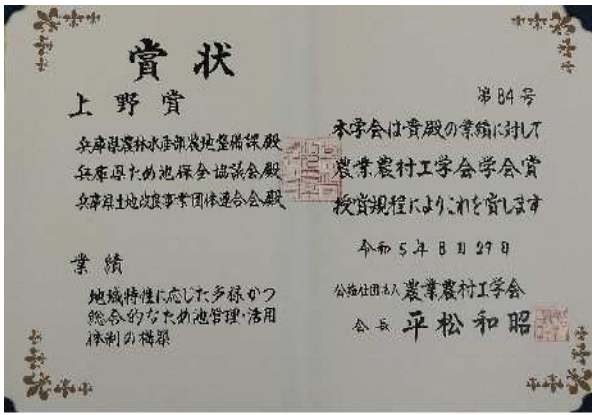 賞状
上野賞
兵庫県農林水産部農地整備課殿
兵庫県ため池保全協議会殿
兵庫県土地改良事業団体連合会殿
業績
地域特性に応じた多様かつ
総合的なため池管理・活用
体制の構築
第84号
本学会は貴殿の業績に対して
農業農村工学会学会賞
授賞規程によりこれを賞します
令和5年8月29日
公益社団法人農業農村工学会
会長 平松和昭